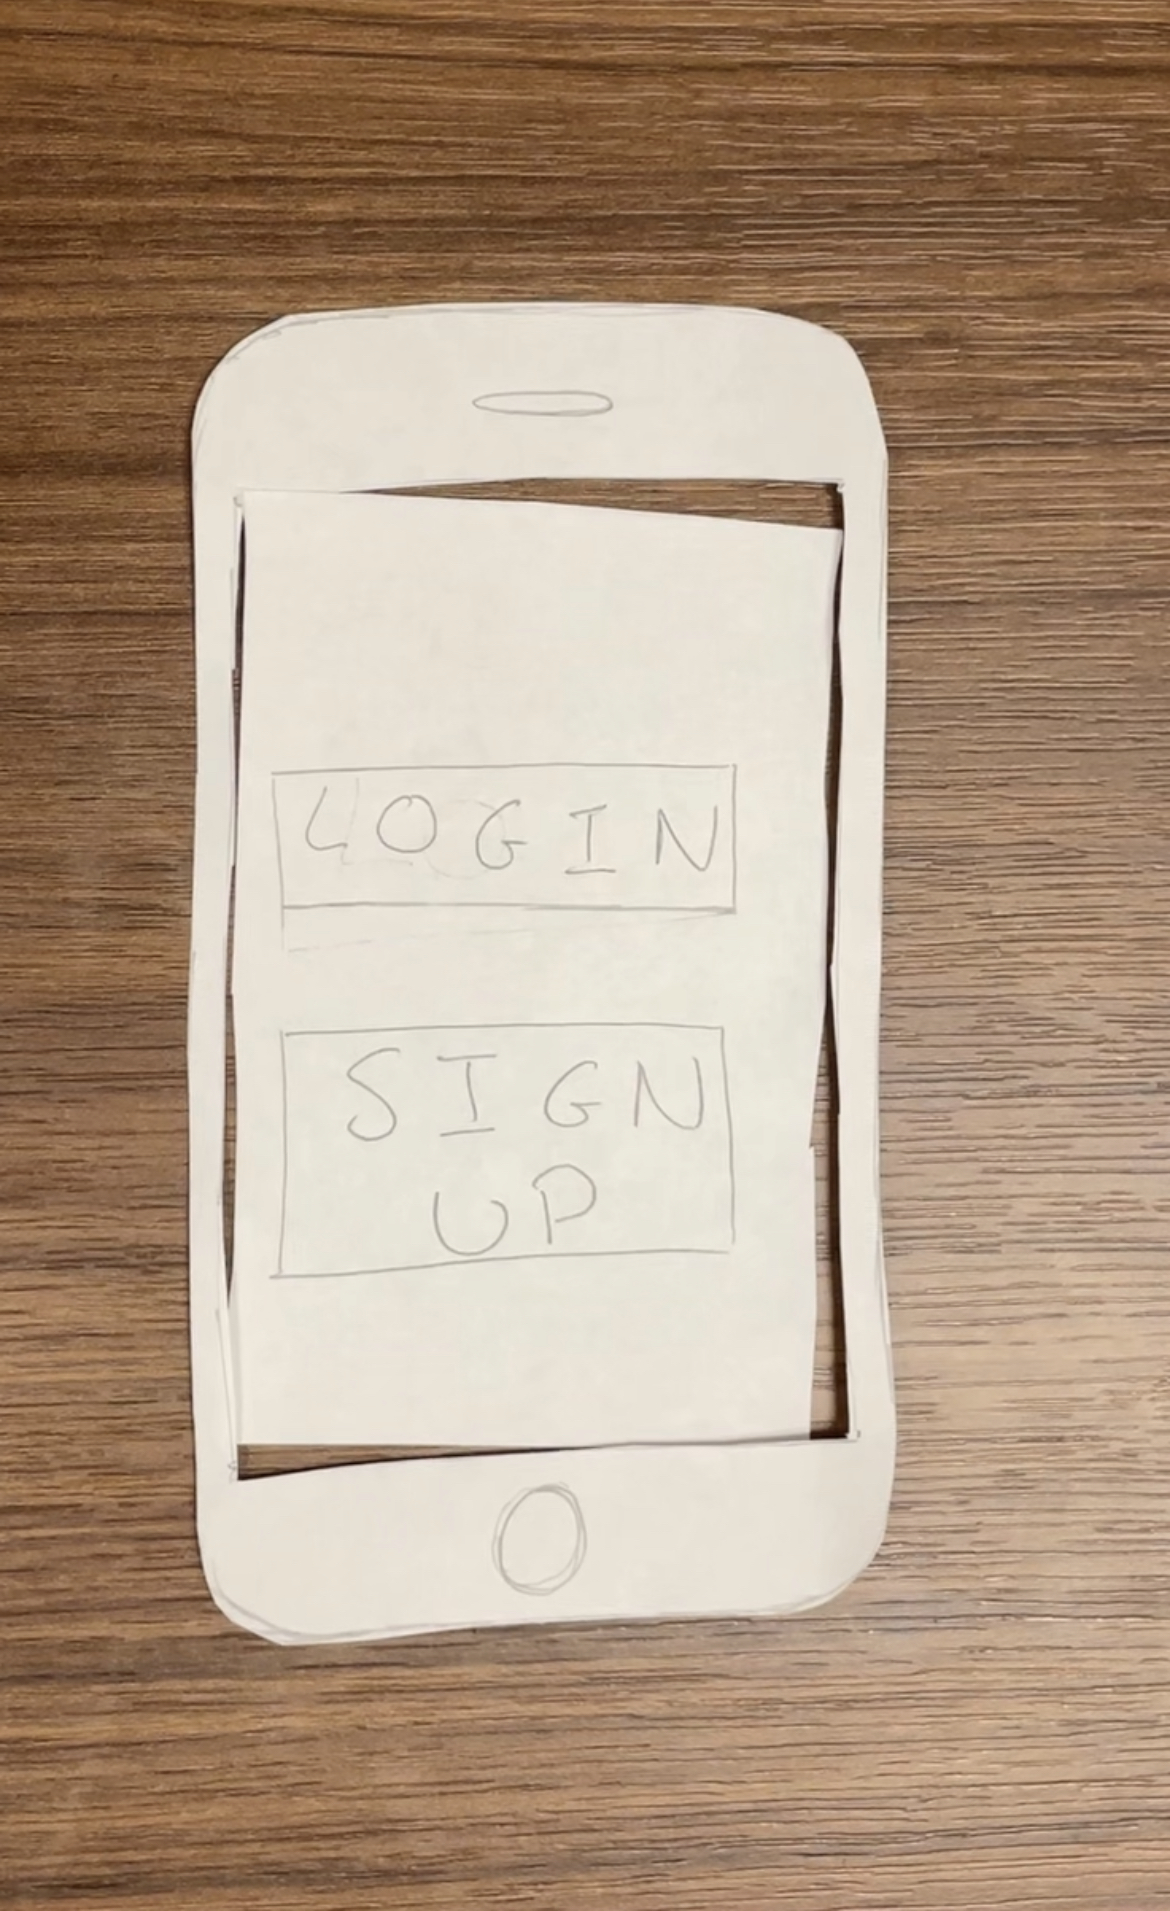 LOGIN
SIGN
UP